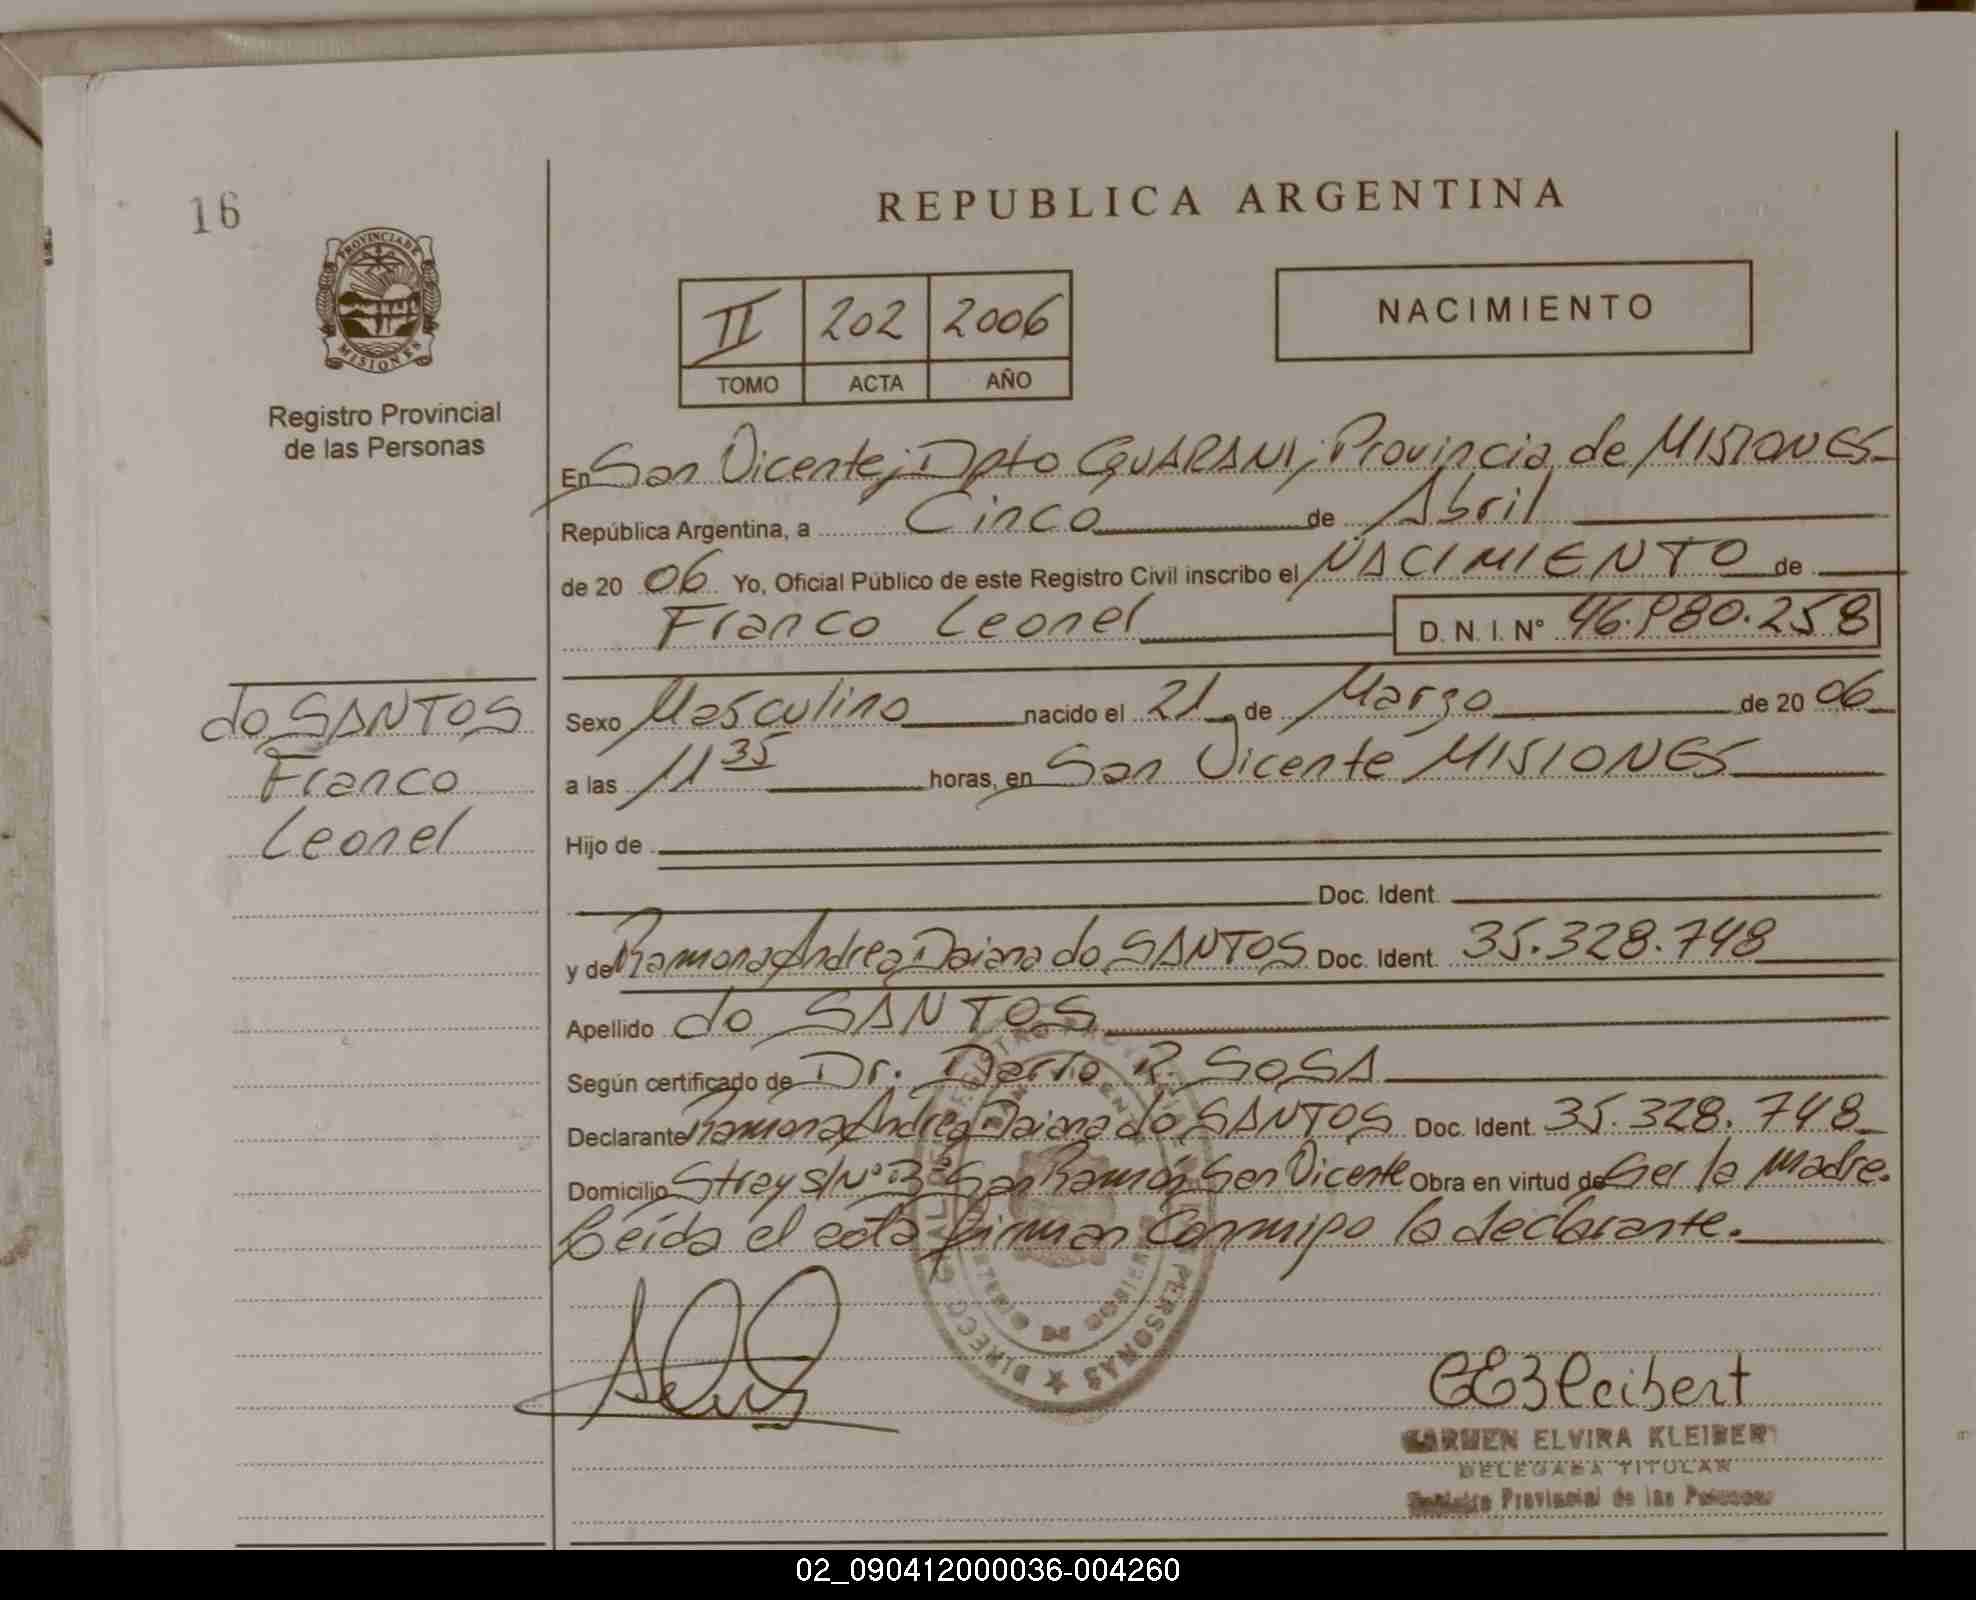 16
PROVINCIA DE
MISIONES
Registro Provincial
de las Personas
REPUBLICA ARGENTINA
II 202 2006
TOMO ACTA AÑO
NACIMIENTO
En San Vicente, Dpto GUARANI, Provincia de MISIONES
República Argentina, a Cinco de Abril
de 2006 Yo, Oficial Público de este Registro Civil inscribo el NACIMIENTO de
Franco Leonel D. N. I. N° 46.980.258
do SANTOS
Franco
Leonel
Sexo Masculino nacido el 21 de Marzo de 2006
a las 11 35 horas, en San Vicente MISIONES
Hijo de
Doc. Ident.
y de Ramona Andrea Daiana do SANTOS Doc. Ident. 35.328.748
Apellido do SANTOS
Según certificado de Dr. Darío R. SOSA
Declarante Ramona Andrea Daiana do SANTOS Doc. Ident. 35.328.748
Domicilio S/N° B° San Ramón San Vicente Obra en virtud de Ser la Madre.
Leída el acta firman Conmigo la declarante.
PERSONAS
CEKleibert
CARMEN ELVIRA KLEIBERT
DELEGADA TITULAR
Registro Provincial de las Personas
02_090412000036-004260